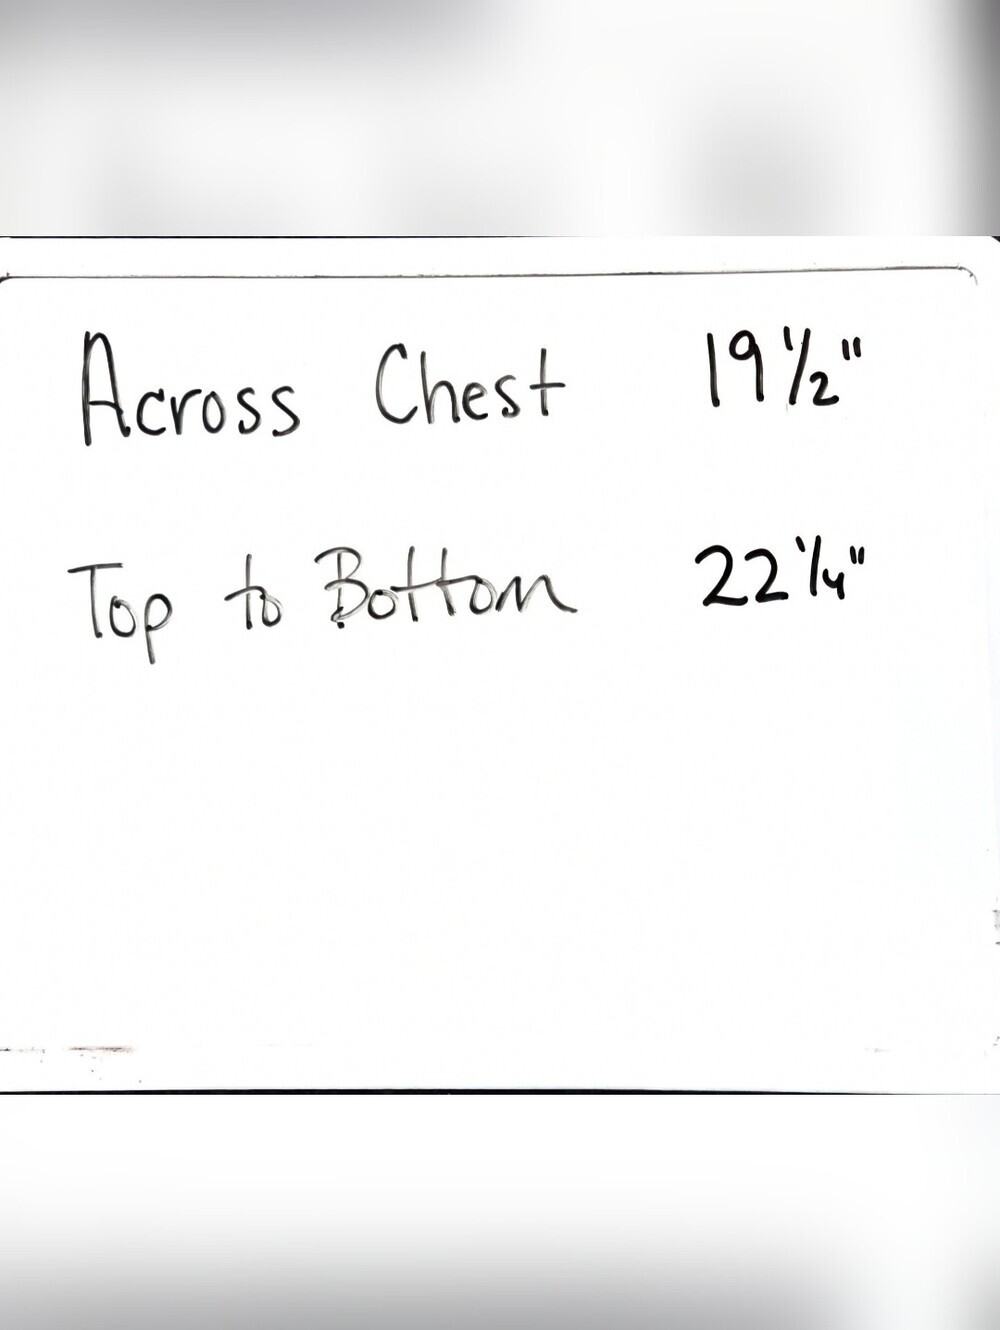 Across Chest 19 1/2"
Top to Bottom 22 1/4"